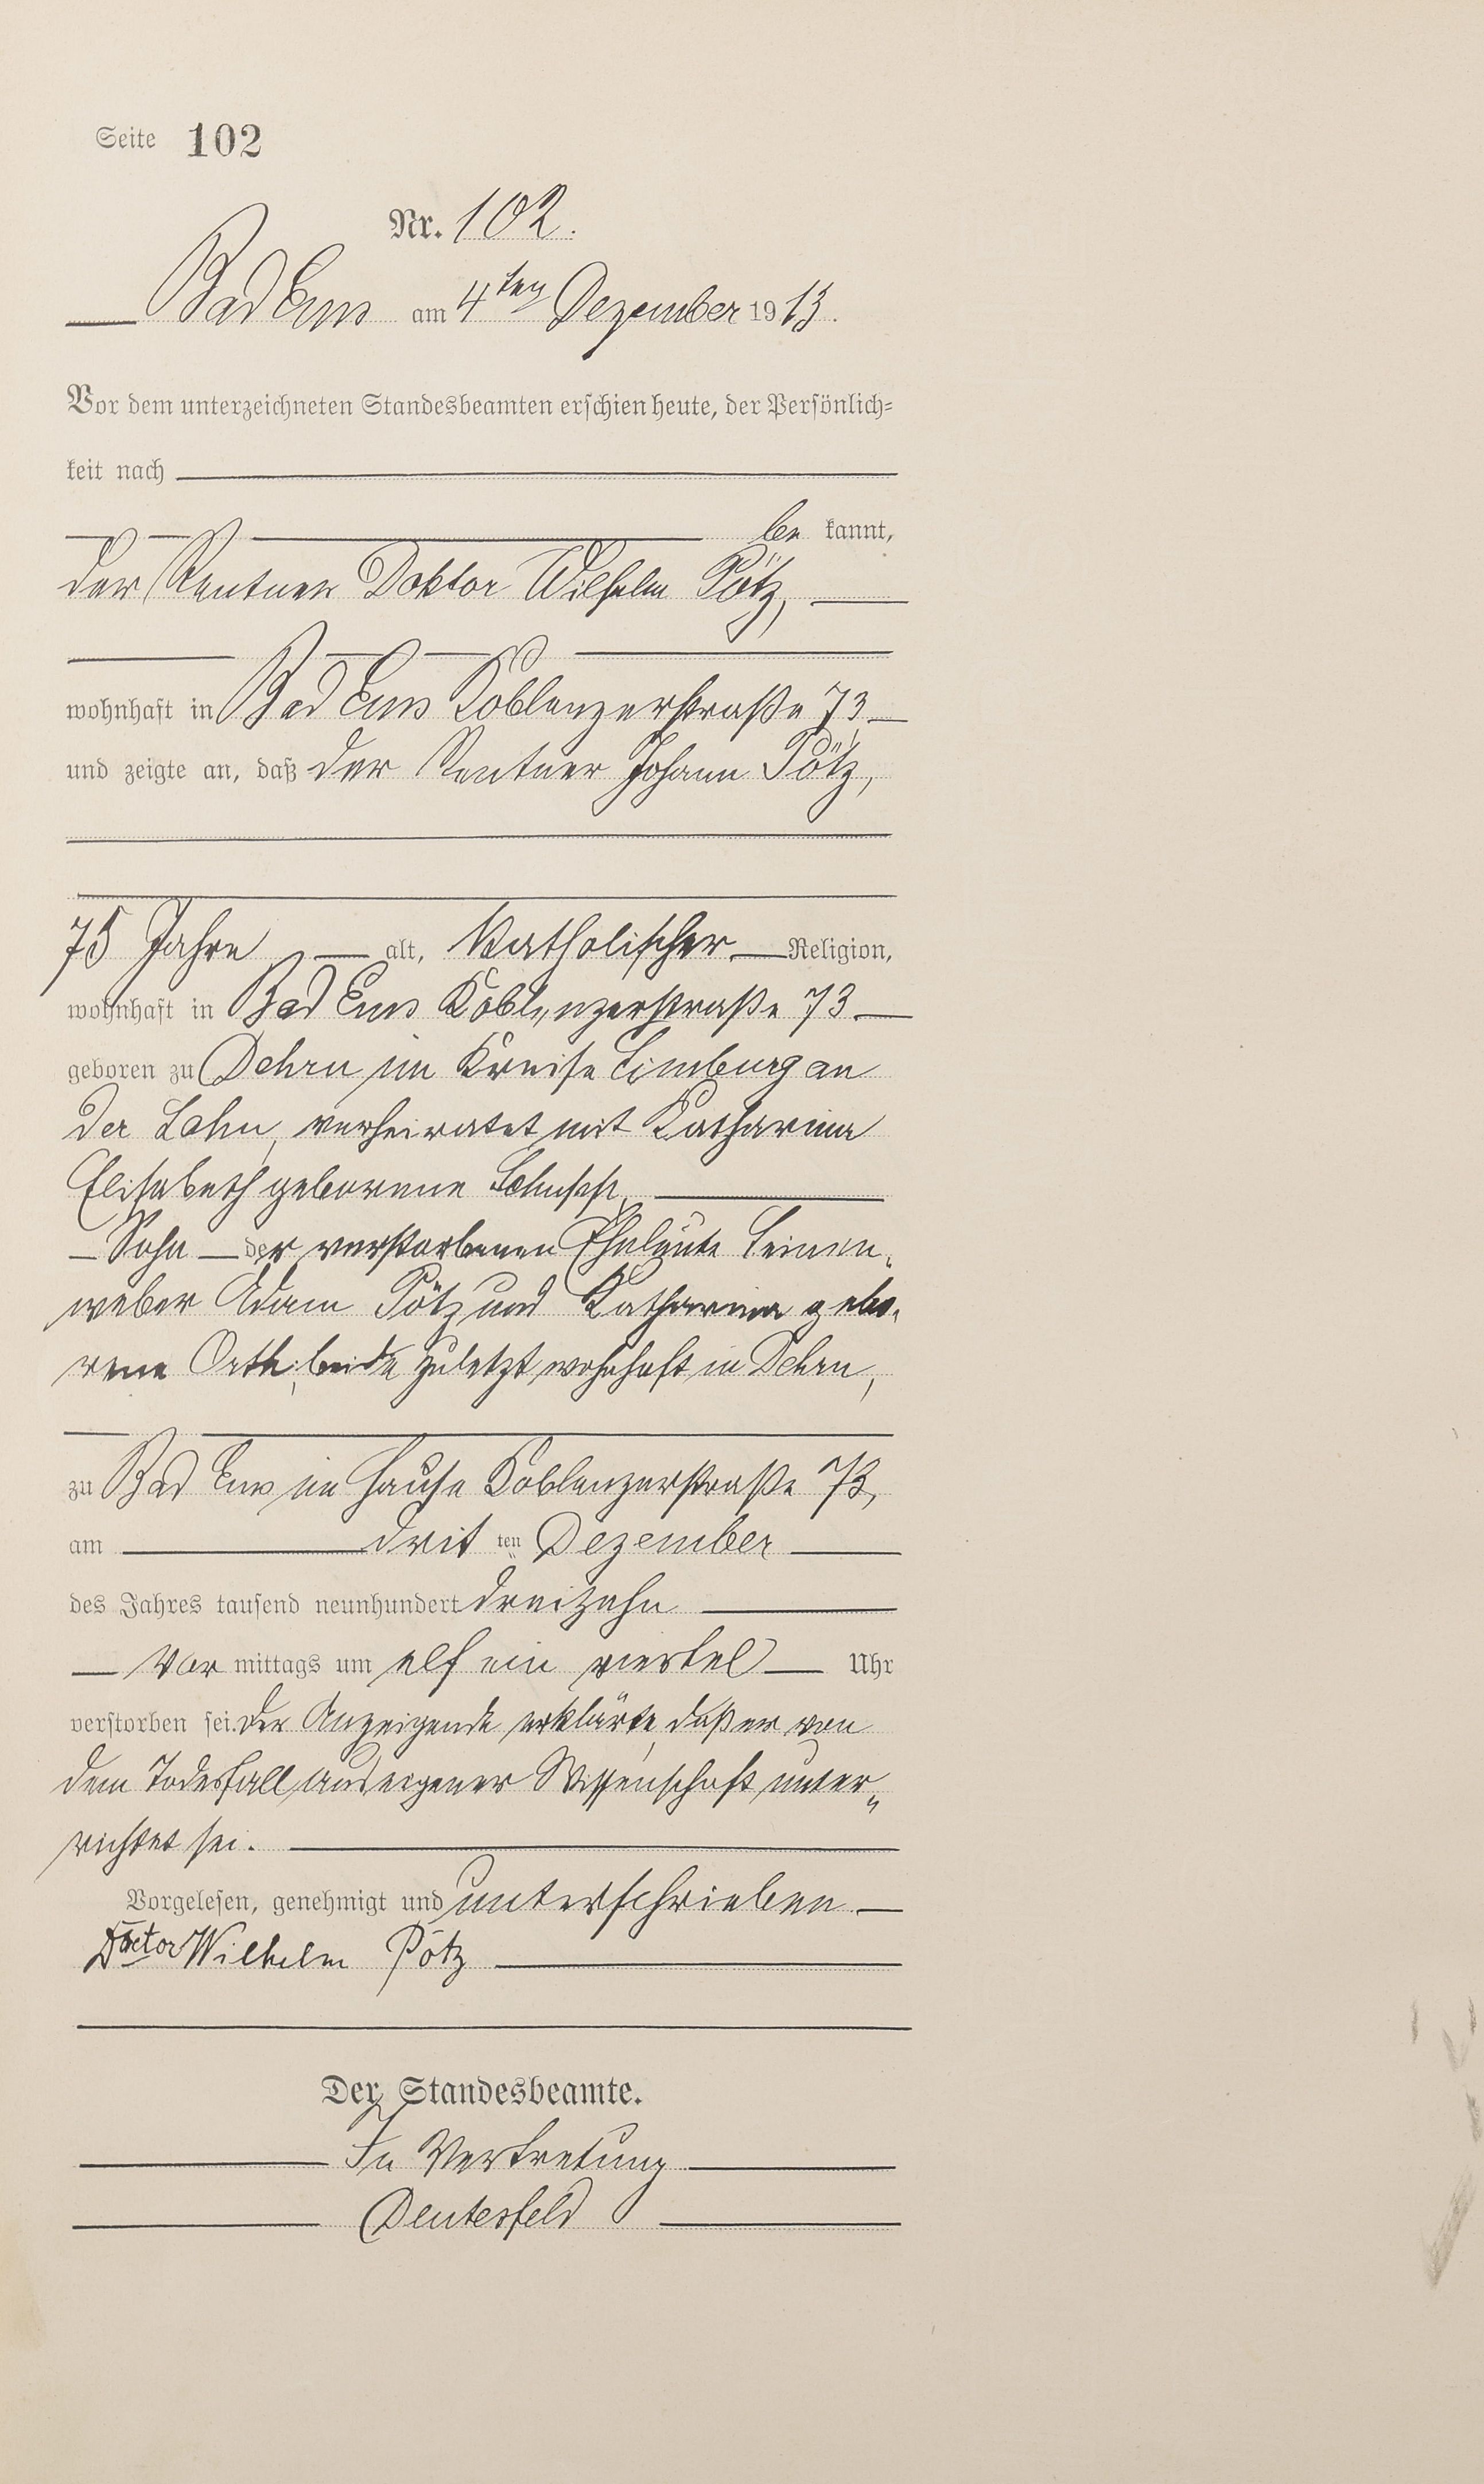 Seite 102
Nr. 102.
Bad Ems am 4ten Dezember 1913.
Vor dem unterzeichneten Standesbeamten erschien heute, der Persönlich=
keit nach
be kannt,
der Rentner Doktor Wilhelm Pötz,
wohnhaft in Bad Ems Koblenzerstraße 73
und zeigte an, daß der Rentner Johann Pötz,
75 Jahre alt, katholischer Religion,
wohnhaft in Bad Ems Koblenzerstraße 73
geboren zu Dehrn im Kreise Limburg an
der Lahn, verheiratet mit Katharina
Elisabeth geborene Schupp,
Sohn der verstorbenen Eheleute Leinen-
weber Adam Pötz und Katharina gebo-
rene Orth, beide zuletzt wohnhaft in Dehrn,
zu Bad Ems im Hause Koblenzerstraße 73,
am dritten Dezember
des Jahres tausend neunhundert dreizehn
Vor mittags um elf ein viertel Uhr
verstorben sei. Der Anzeigende erklärte, daß er von
dem Todesfall aus eigener Wissenschaft unter-
richtet sei.
Vorgelesen, genehmigt und unterschrieben
Doctor Wilhelm Pötz
Der Standesbeamte.
In Vertretung
Deutesfeld